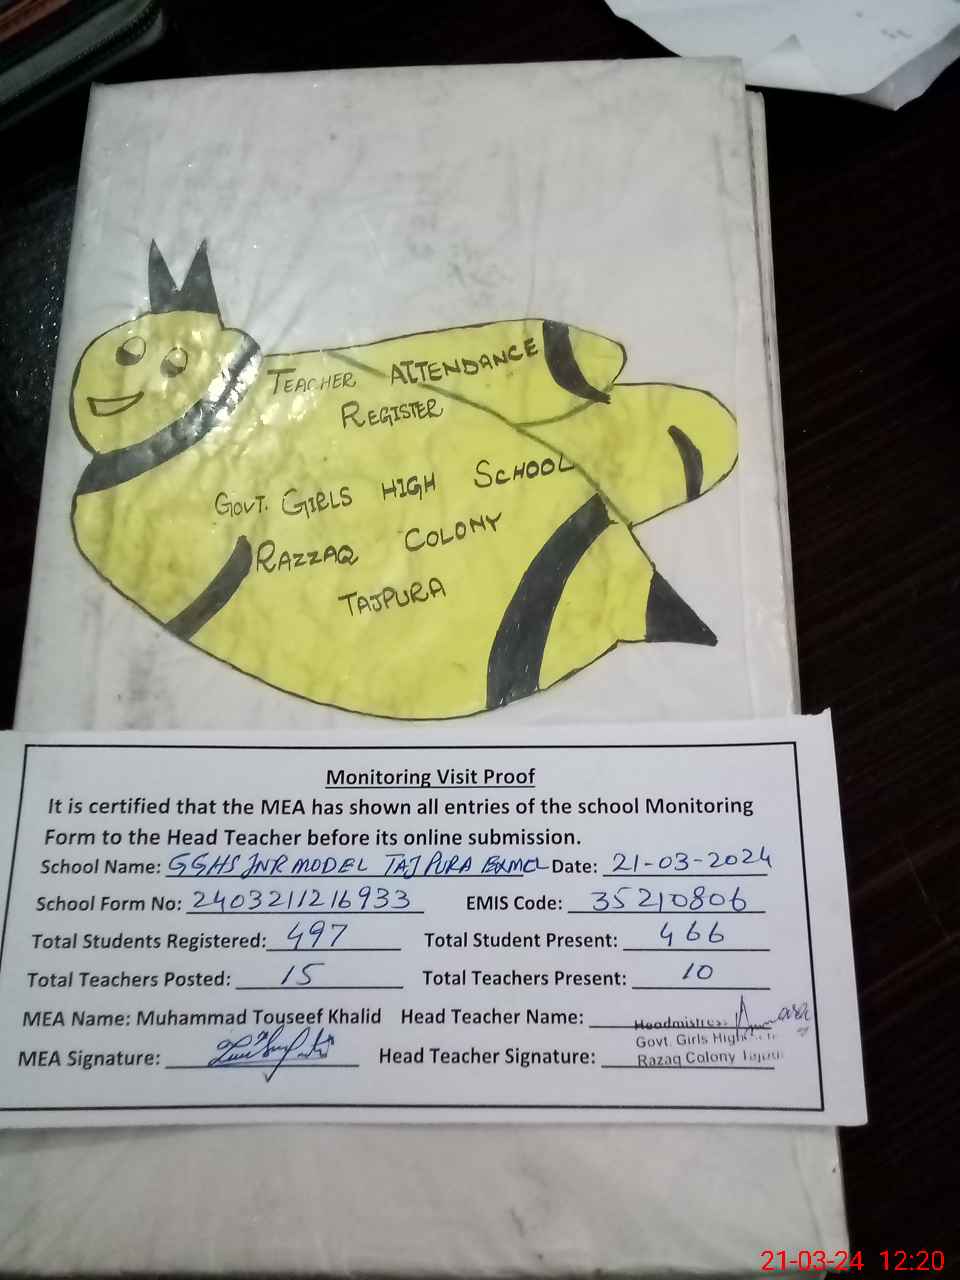 TEACHER ATTENDANCE
REGISTER
GOVT. GIRLS HIGH SCHOOL
RAZZAQ COLONY
TAJPURA
Monitoring Visit Proof
It is certified that the MEA has shown all entries of the school Monitoring
Form to the Head Teacher before its online submission.
School Name: GGHS JNR MODEL TAJPURA Date: 21-03-2024
School Form No: 2403211216933 EMIS Code: 35210806
Total Students Registered: 497 Total Student Present: 466
Total Teachers Posted: 15 Total Teachers Present: 10
MEA Name: Muhammad Touseef Khalid Head Teacher Name:
Headmistress
MEA Signature: Head Teacher Signature:
Govt. Girls High
Razaq Colony
21-03-24 12:20